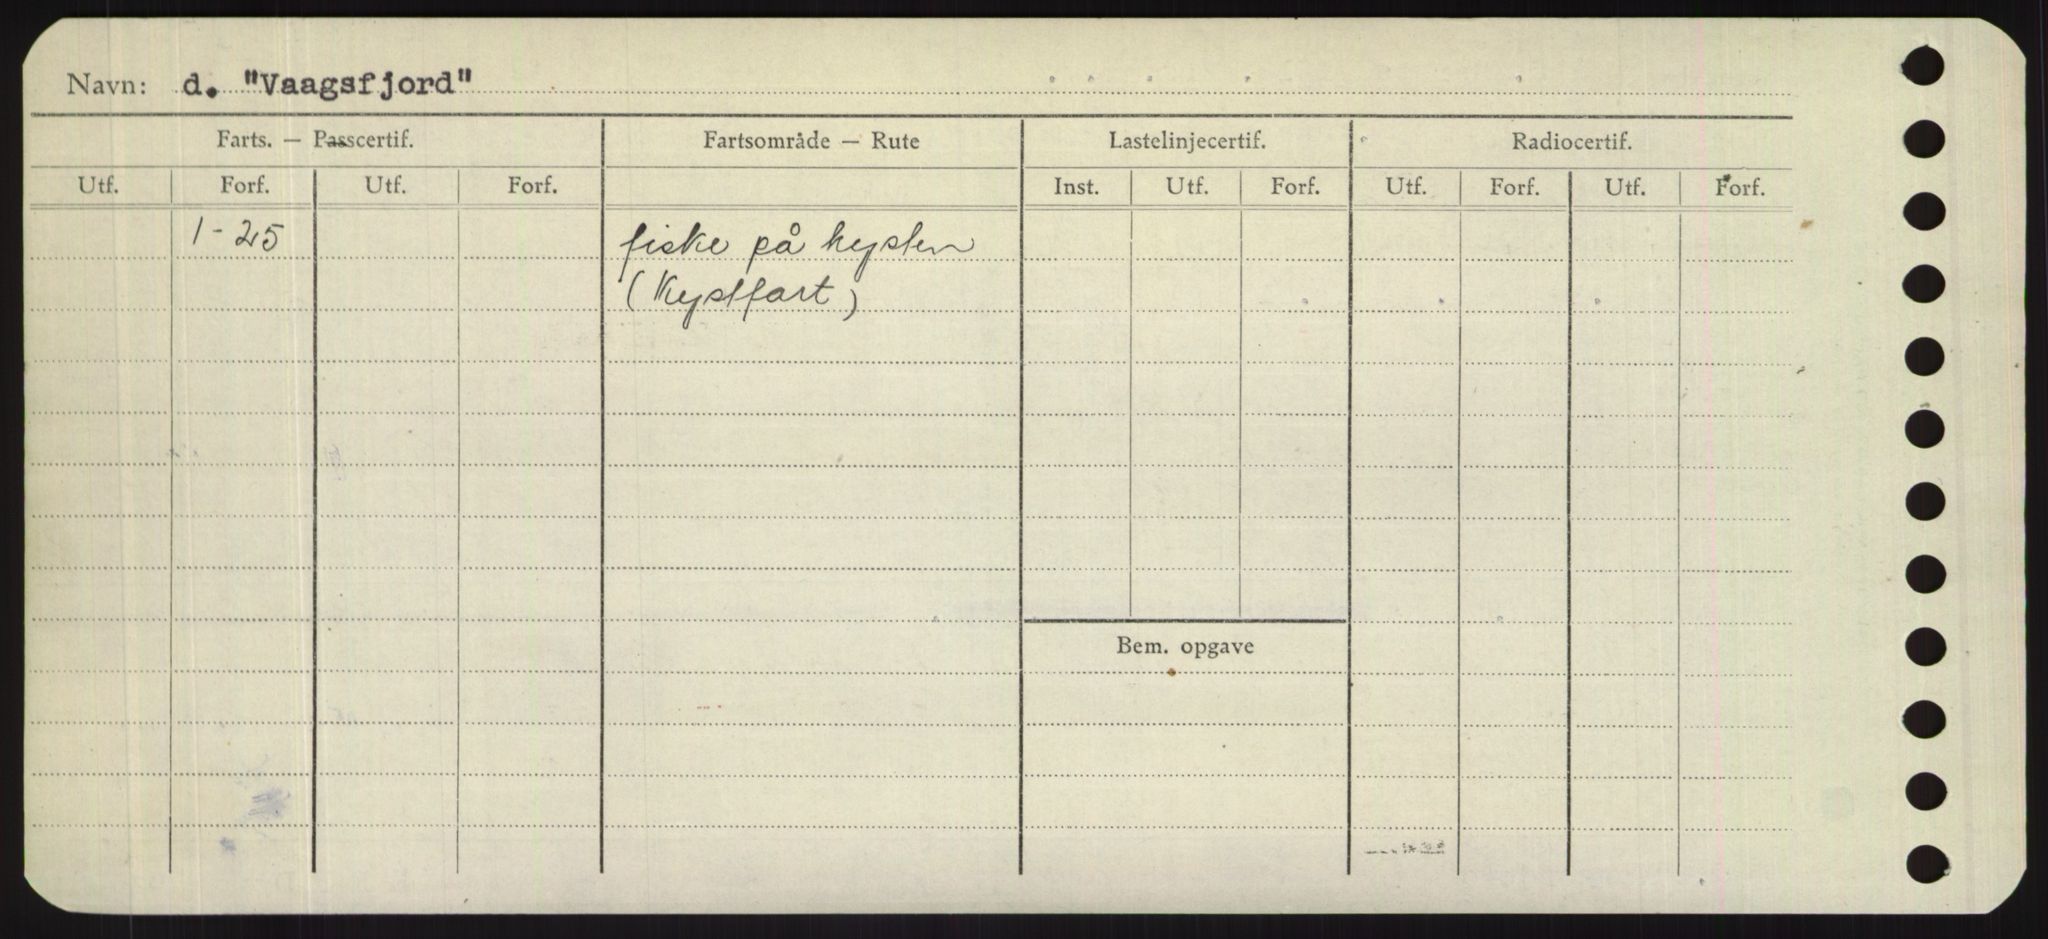 Navn: d. "Vaagsfjord"
Farts. — Passcertif. Fartsområde — Rute Lastelinjecertif. Radiocertif.
Utf. Forf. Utf. Forf. Inst. Utf. Forf. Utf. Forf. Utf. Forf.
1-25 fiske på kysten
(Kystfart)
Bem. opgave